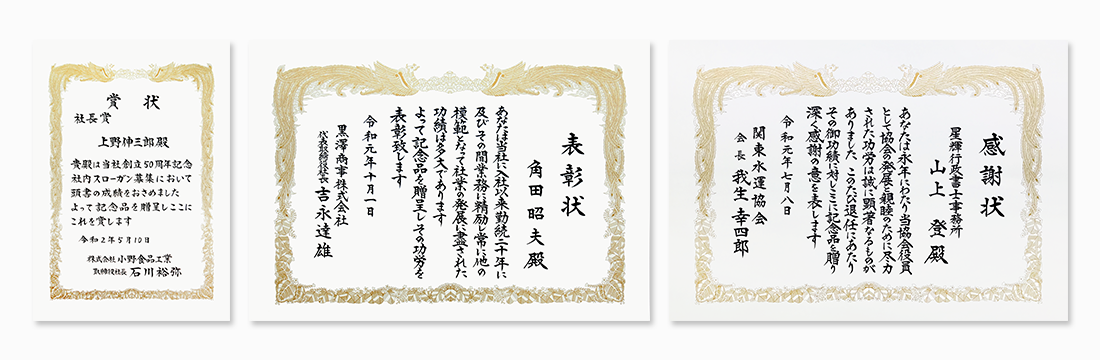 賞状
社長賞
上野伸三郎殿
貴殿は当社創立50周年記念
社内スローガン募集において
頭書の成績をおさめました
よって記念品を贈呈しここに
これを賞します
令和2年5月10日
株式会社小野食品工業
取締役社長 石川裕弥
表彰状
角田昭夫殿
あなたは当社に入社以来勤続二十年に
及びその間業務に精励し常に他の
模範となって社業の発展に尽された
功績は多大であります
よって記念品を贈呈しその功労を
表彰致します
令和元年十月一日
黒澤商事株式会社
代表取締役社長 吉永達雄
感謝状
星輝行政書士事務所
山上登殿
あなたは永年にわたり当協会役員
として協会の発展と親睦のために尽力
された功労は誠に顕著なるものが
ありました このたび退任にあたり
その御功績に対しここに記念品を贈り
深く感謝の意を表します
令和元年七月八日
関東水運協会
会長 我生幸四郎